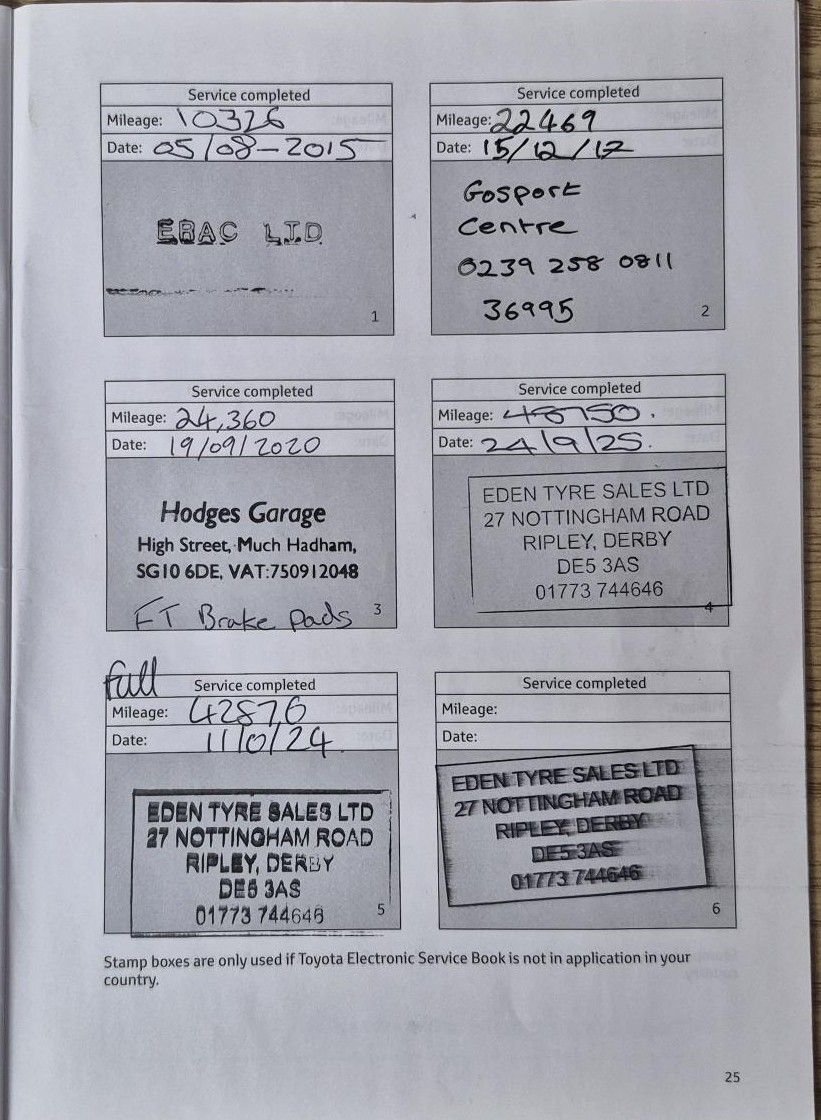 Service completed
Mileage: 10326
Date: 05/08-2015
EBAC LTD
1
Service completed
Mileage: 22469
Date: 15/12/17
Gosport
Centre
0239 258 0811
36995
2
Service completed
Mileage: 24,360
Date: 19/09/2020
Hodges Garage
High Street, Much Hadham,
SG10 6DE, VAT:750912048
FT Brake pads
3
Service completed
Mileage: 48750.
Date: 24/9/25.
EDEN TYRE SALES LTD
27 NOTTINGHAM ROAD
RIPLEY, DERBY
DE5 3AS
01773 744646
4
full
Service completed
Mileage: 42876
Date: 11/0/24
EDEN TYRE SALES LTD
27 NOTTINGHAM ROAD
RIPLEY, DERBY
DE5 3AS
01773 744646
5
Service completed
Mileage:
Date:
EDEN TYRE SALES LTD
27 NOTTINGHAM ROAD
RIPLEY, DERBY
DE5 3AS
01773 744646
6
Stamp boxes are only used if Toyota Electronic Service Book is not in application in your
country.
25